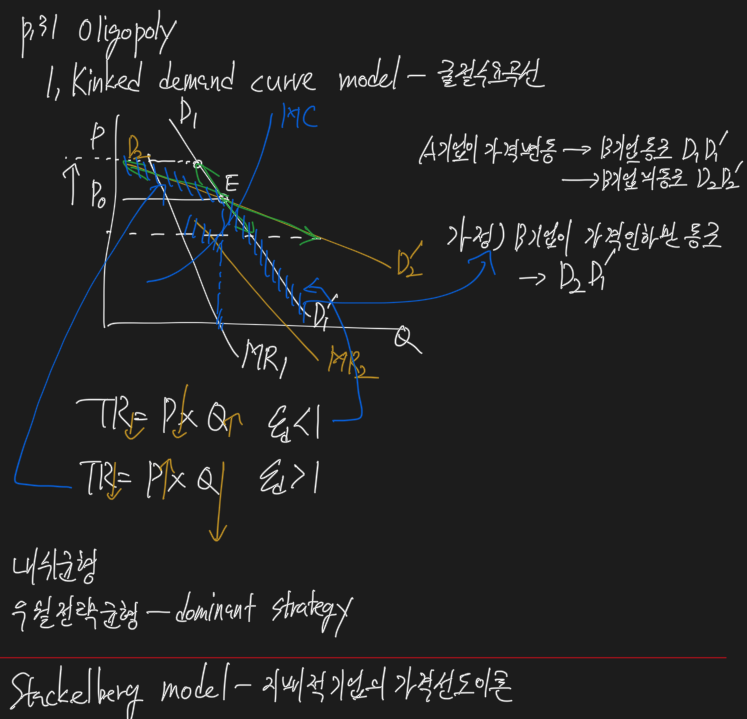 p.31 Oligopoly
1, Kinked demand curve model – 굴절수요곡선
P
D₁
MC
D₂
E
P₀
A기업이 가격변동 → B기업 동조 D₁D₁′
→ B기업 비동조 D₂D₂′
가정) B기업이 가격인하면 동조
→ D₂D₁′
D₂′
D₁′
Q
MR₁
MR₂
TR↓= P↓× Q↑ εd<1
TR↓= P↑× Q↓ εd>1
내쉬균형
우월전략균형 – dominant strategy
Stackelberg model – 지배적기업의 가격선도이론